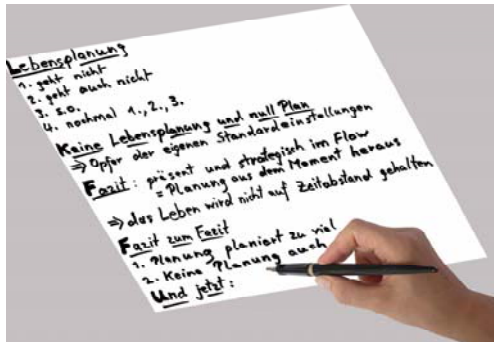 Lebensplanung
1. geht nicht
2. geht auch nicht
3. s.o.
4. nochmal 1., 2., 3.
Keine Lebensplanung und null Plan
⇒ Opfer der eigenen Standardeinstellungen
Fazit: präsent und strategisch im Flow
= Planung aus dem Moment heraus
⇒ das Leben wird nicht auf Zeitabstand gehalten
Fazit zum Fazit
1. Planung planiert zu viel
2. Keine Planung auch
Und jetzt: